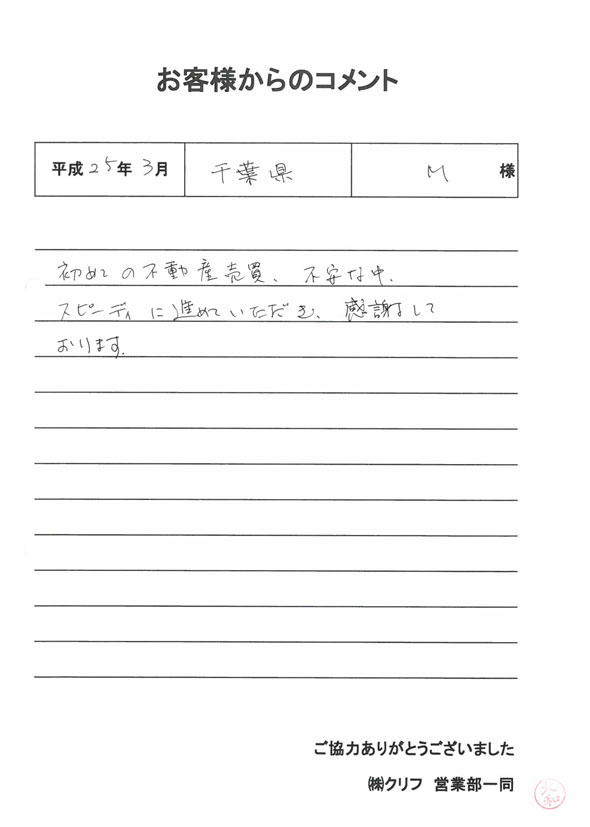 お客様からのコメント
平成25年3月 千葉県 M 様
初めての不動産売買、不安な中、
スピーディに進めていただき、感謝して
おります。
ご協力ありがとうございました
㈱クリフ 営業部一同